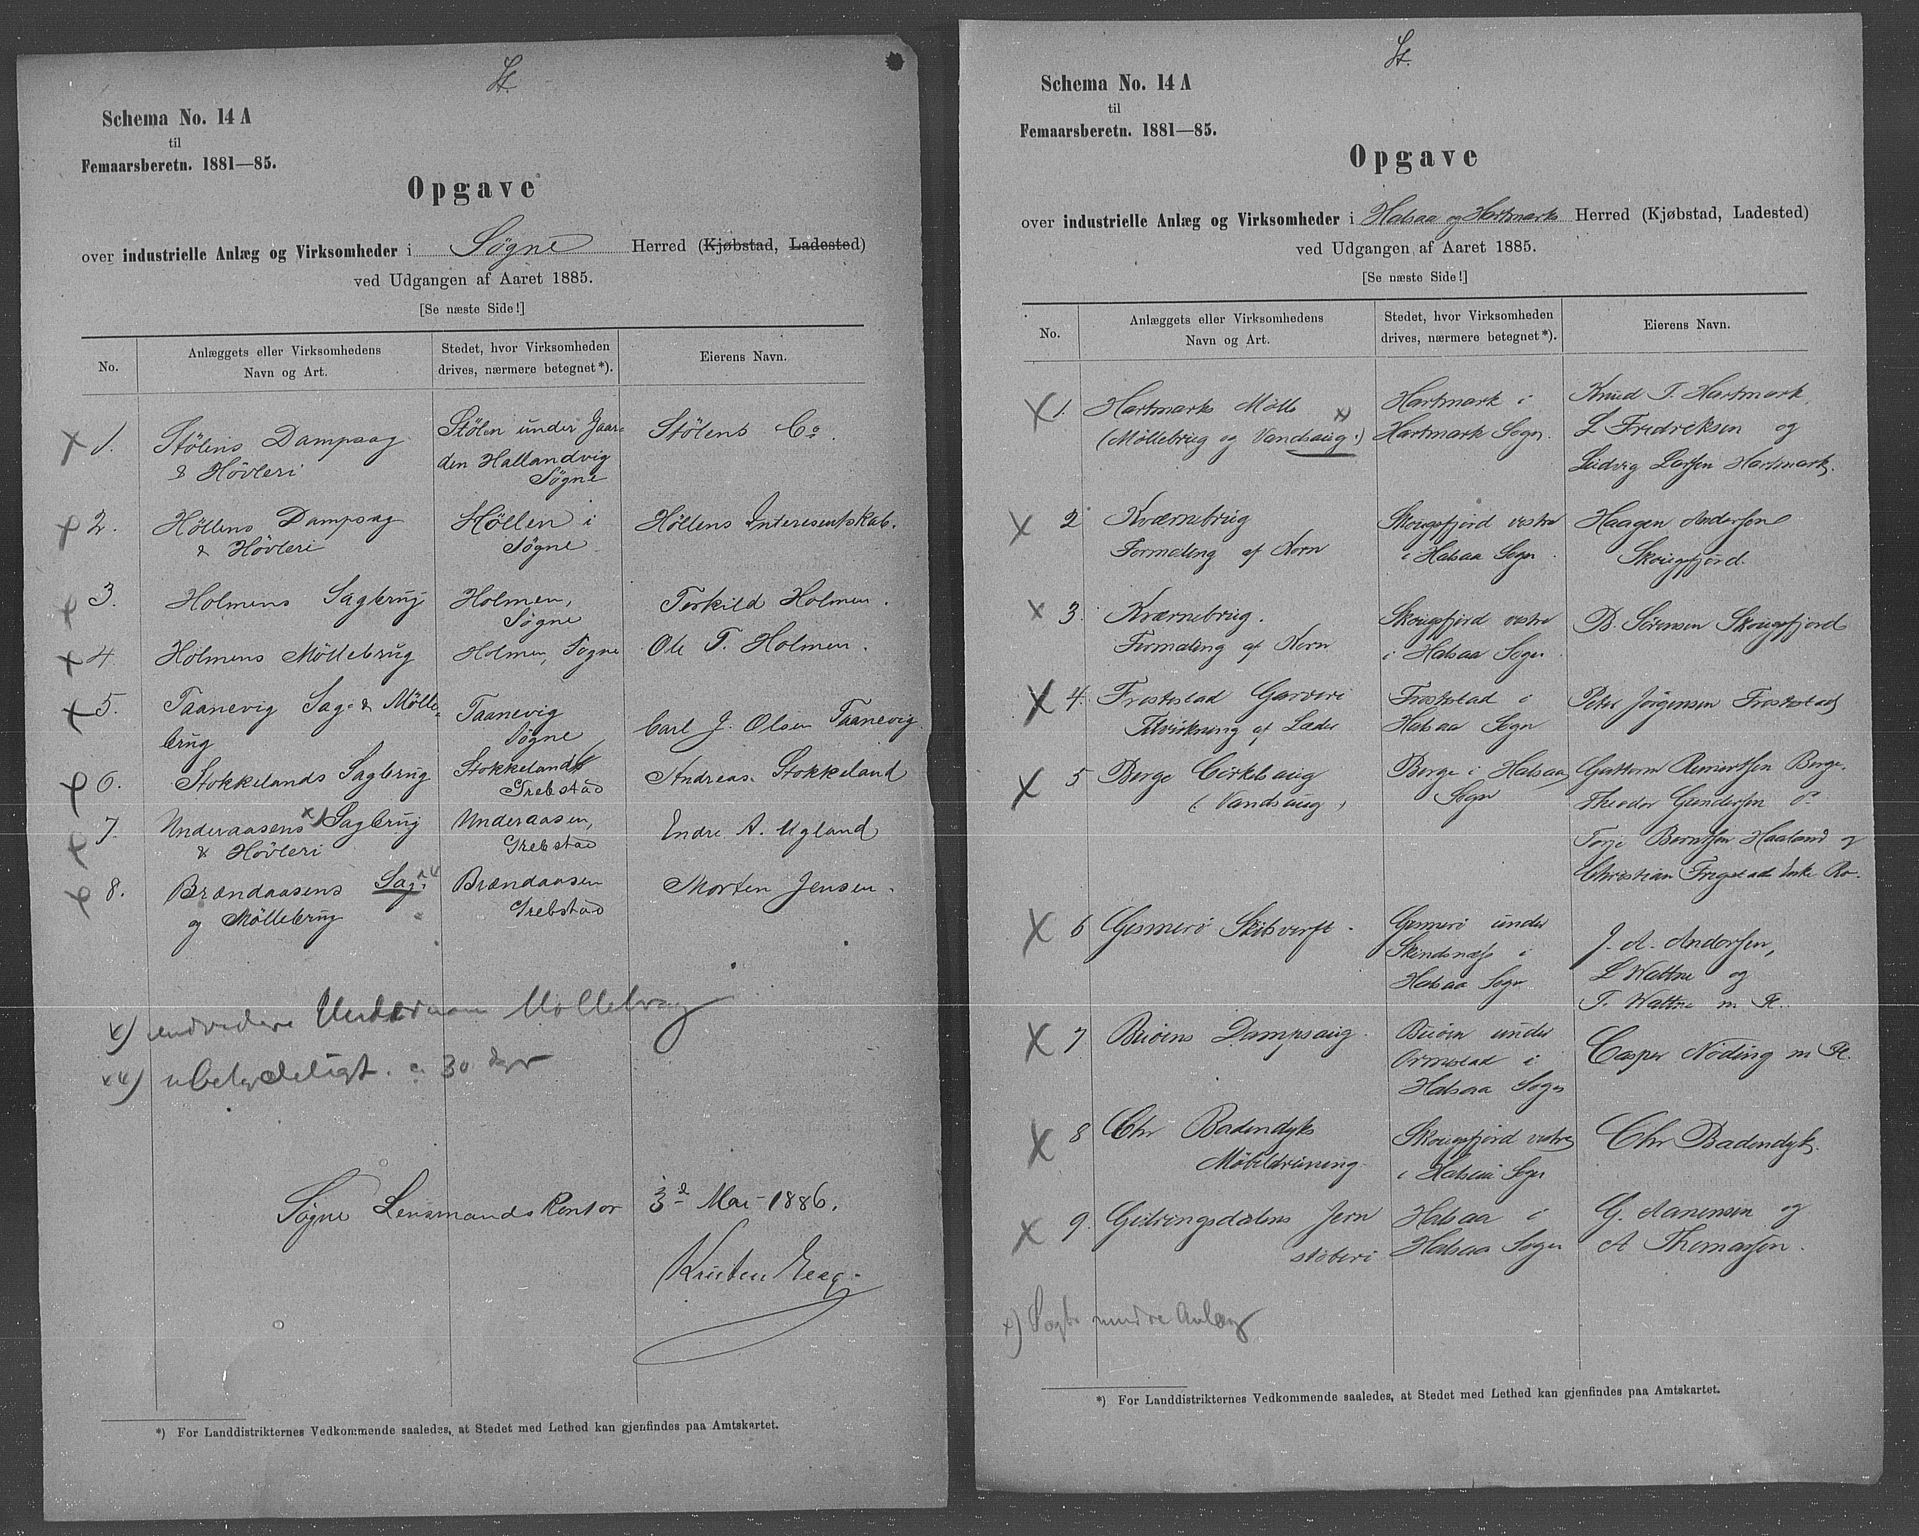 St.
Schema No. 14 A
til
Femaarsberetn. 1881—85.
Opgave
over industrielle Anlæg og Virksomheder i Søgne Herred (Kjøbstad, Ladested)
ved Udgangen af Aaret 1885.
[Se næste Side!]
No. Anlæggets eller Virksomhedens Navn og Art. Stedet, hvor Virksomheden drives, nærmere betegnet*). Eierens Navn.
1. Stølens Dampsag Stølen under Jaar- Stølens Co.
& Høvleri den Hallandvig
Søgne
2. Høllens Dampsag Høllen i Høllens Interesentskab.
& Høvleri Søgne
3. Holmens Sagbrug Holmen, Terkild Holmen.
Søgne
4. Holmens Møllebrug Holmen, Søgne Ole T. Holmen.
5. Taanevig Sag- & Mølle- Taanevig Carl J. Olsen Taanevig.
brug Søgne
6. Stokkelands Sagbrug Stokkeland Andreas Stokkeland
Grebstad
7. Underaasens x) Sagbrug Underaasen, Endre A. Ugland
& Høvleri Grebstad
8. Brændaasens Sag- Brændaasen Morten Jensen.
og Møllebrug Grebstad
x) endvidere Møllebrug
ubetydeligt. 30
Søgne Lensmandskontor 3d Mai 1886.
*) For Landdistrikternes Vedkommende saaledes, at Stedet med Lethed kan gjenfindes paa Amtskartet.
St.
Schema No. 14 A
til
Femaarsberetn. 1881—85.
Opgave
over industrielle Anlæg og Virksomheder i Halsaa og Hartmarks Herred (Kjøbstad, Ladested)
ved Udgangen af Aaret 1885.
[Se næste Side!]
No. Anlæggets eller Virksomhedens Navn og Art. Stedet, hvor Virksomheden drives, nærmere betegnet*). Eierens Navn.
1. Hartmarks Mølle x) Hartmark i Knud T. Hartmark,
(Møllebrug og Vandsaug.) Hartmark Sogn. L Fredriksen og
Ludvig Larssen Hartmark.
2 Kværnebrug Skougsfjord vestre Haagen Anderssen
Formaling af Korn i Halsaa Sogn. Skougsfjord.
3. Kværnebrug. Skougsfjord vestre B. Sørensen Skougsfjord
Formaling af Korn i Halsaa Sogn
4. Frostestad Garveri Frostestad i Peter Jørgensen Frostestad
Tilvirkning af Læder Halsaa Sogn
5 Berge Cirkelsaug Berge i Halsaa Guttorm Reinertsen Berge.
(Vandsaug) Sogn Theodor Gundersen do
Torje Berntsen Haaland og
Christian Frigstads Enke
6 Gismerø Skibsverft. Gismerø under J. A. Anderssen,
Skindsnæs i L Wattne og
Halsaa Sogn T. Wattne m. Fl.
7 Buøens Dampsaug Buøen under Casper Nøding m Fl.
Ormestad i
Halsaa Sogn
8 Chr Badendyks Skougsfjord vestre Chr Badendyk.
i Halsaa Sogn
9. Jern Halsaa i G. Aanensen og
støberi Halsaa Sogn A Thomassen.
x) mindre Anlæg
*) For Landdistrikternes Vedkommende saaledes, at Stedet med Lethed kan gjenfindes paa Amtskartet.